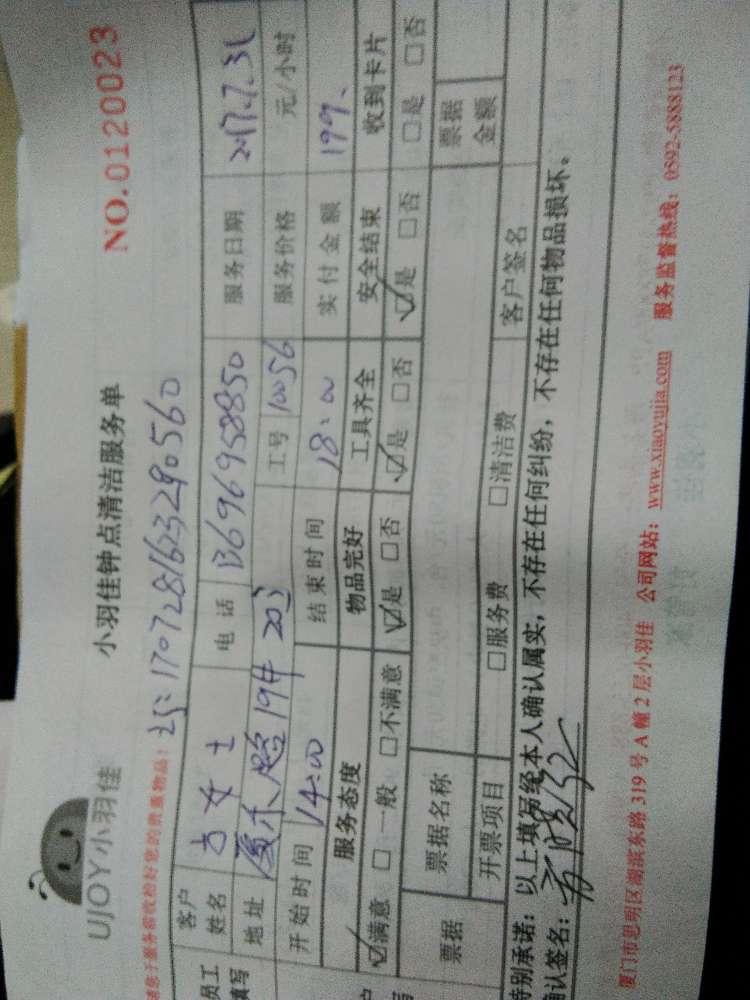 UJOY小羽佳 小羽佳钟点清洁服务单 NO.0120023
请您于服务前收拾好您的贵重物品! 1707281623290560
员工填写 客户姓名 方女士 电话 13696958850 服务日期 2017.7.31
地址 19# 203 工号 10056 服务价格 元/小时
开始时间 14:00 结束时间 18:00 实付金额 199.
服务态度 物品完好 工具齐全 安全结束 收到卡片
☑满意 □一般 □不满意 ☑是 □否 ☑是 □否 ☑是 □否 □是 □否
票据 票据名称 票据金额
开票项目 □服务费 □清洁费 客户签名
特别承诺:以上填写经本人确认属实,不存在任何纠纷,不存在任何物品损坏。
确认签名:
厦门市思明区湖滨东路319号A幢2层小羽佳 公司网站:www.xiaoyujia.com 服务监督热线:0592-5888123